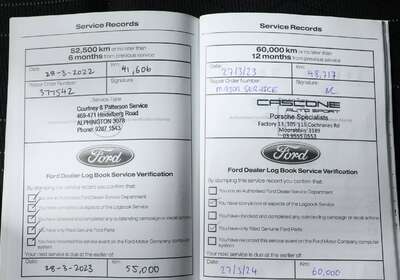 Service Records
52,500 km or no later than
6 months from previous service
Date:
28-3-2022
Km:
41,606
Repair Order Number:
377542
Signature
Service Type
Courtney & Patterson Service
469-471 Heidelberg Road
ALPHINGTON 3078
Phone: 9287 1843
Ford
Ford Dealer Log Book Service Verification
By stamping this service record you confirm that:
You are an Authorised Ford Dealer Service Department
You have completed all aspects of the Logbook Service
You have checked and completed any outstanding campaign or recall actions
You have only fitted Genuine Ford Parts
You have recorded this service event on the Ford Motor Company computer system
Your next service is due at the earlier of:
28-3-2023
Km:
55,000
Service Records
60,000 km or no later than
12 months from previous service
Date:
27/3/23
Km:
48,717
Repair Order Number:
MAJOR SERVICE
Signature
CASCONE
AUTO SPORT
Porsche Specialists
Moorabbin 3189
Ford
Ford Dealer Log Book Service Verification
By stamping this service record you confirm that:
You are an Authorised Ford Dealer Service Department
You have completed all aspects of the Logbook Service
You have checked and completed any outstanding campaign or recall actions
You have only fitted Genuine Ford Parts
You have recorded this service event on the Ford Motor Company computer system
Your next service is due at the earlier of:
27/3/24
Km:
60,000